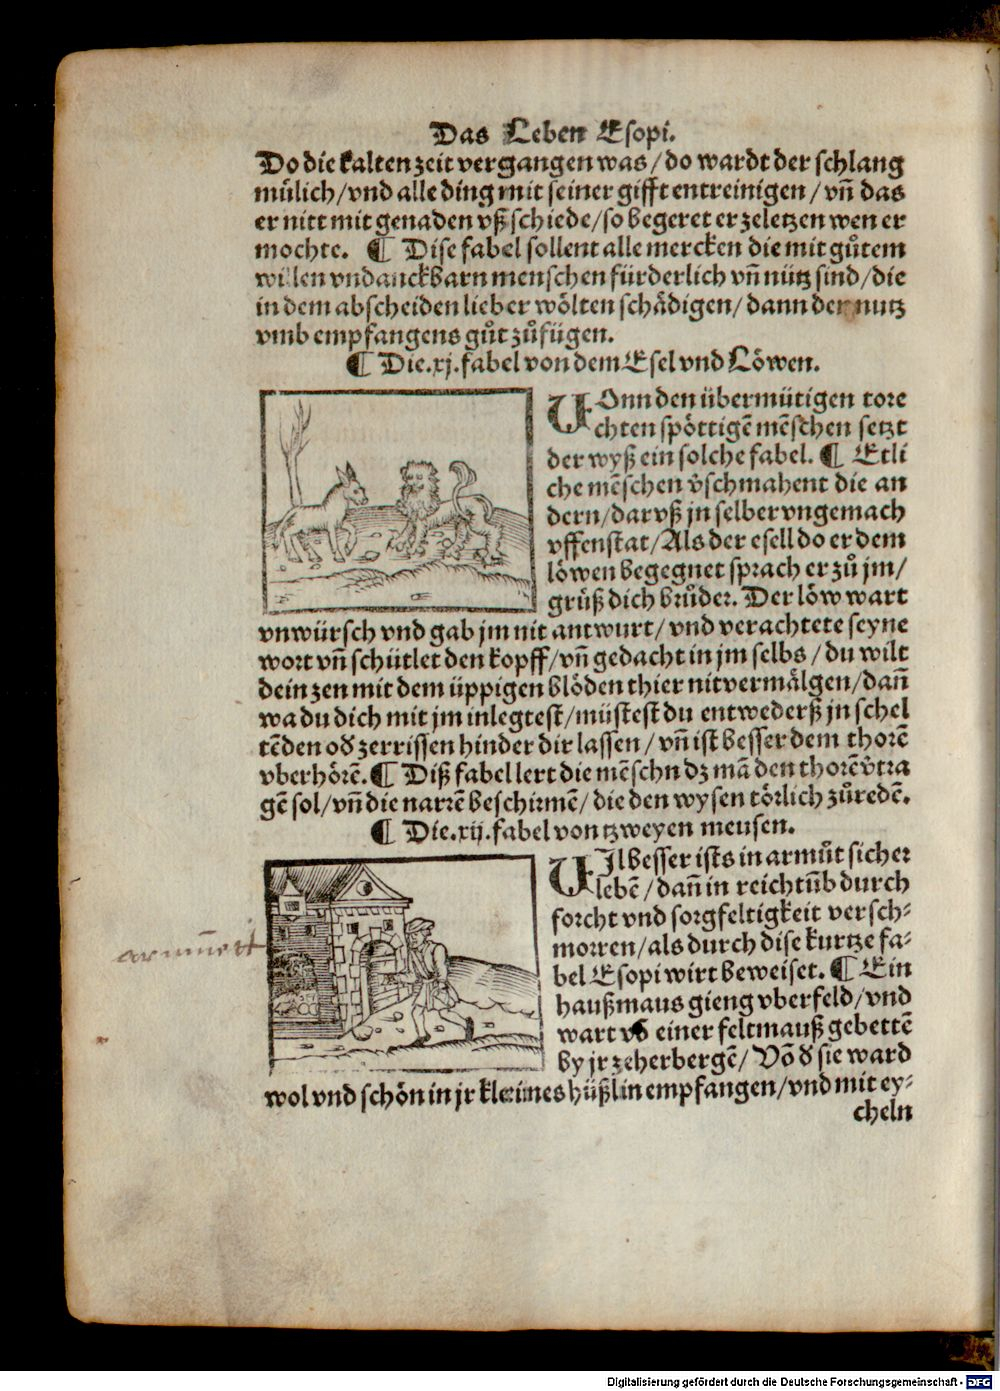 Das Leben Esopi.
Do die kalten zeit vergangen was / do wardt der schlang
mülich / vnd alle ding mit seiner gifft entreinigen / vn̄ das
er nitt mit genaden vß schiede / so begeret er zeletzen wen er
mochte. ¶ Dise fabel sollent alle mercken die mit gůtem
willen vndanckbarn menschen fürderlich vn̄ nütz sind / die
in dem abscheiden lieber wölten schädigen / dann den nutz
vmb empfangens gůt zůfügen.
¶ Die .xj. fabel von dem Esel vnd Löwen.
VOnn den übermütigen tore
chten spöttigē mēschen setzt
der wyß ein solche fabel. ¶ Etli
che mēschen v̄schmahent die an
dern / dar vß jn selber vngemach
vffenstat / Als der esell do er dem
löwen begegnet sprach er zů jm /
grüß dich brůder. Der löw wart
vnwürsch vnd gab jm nit antwurt / vnd verachtete seyne
wort vn̄ schütlet den kopff / vn̄ gedacht in jm selbs / du wilt
dein zen mit dem üppigen blöden thier nit vermälgen / dan̄
wa du dich mit jm inlegtest / müstest du entwederß jn schel
tēden oď zerrissen hinder dir lassen / vn̄ ist besser dem thorē
vberhörē. ¶ Diß fabel lert die mēschn dz mā den thorē v̄tra
gē sol / vn̄ die narrē beschirmē / die den wysen törlich zůredē.
¶ Die .xij. fabel von tzweyen meusen.
VIl besser ists in armůt sicher
lebē / dan̄ in reichtūb durch
forcht vnd sorgfeltigkeit versch⸗
morren / als durch dise kurtze fa⸗
bel Esopi wirt beweiset. ¶ Ein
haußmaus gieng vber feld / vnd
wart vō einer feltmauß gebettē
by jr zeherbergē / Vō ď sie ward
wol vnd schön in jr kleines hüßlin empfangen / vnd mit ey⸗
cheln
Digitalisierung gefördert durch die Deutsche Forschungsgemeinschaft - DFG